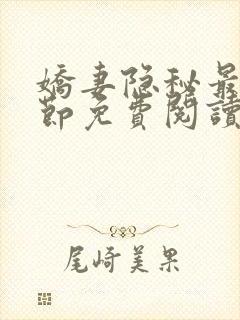 嬌妻隐秘最
節免費閱讀
尾崎美果